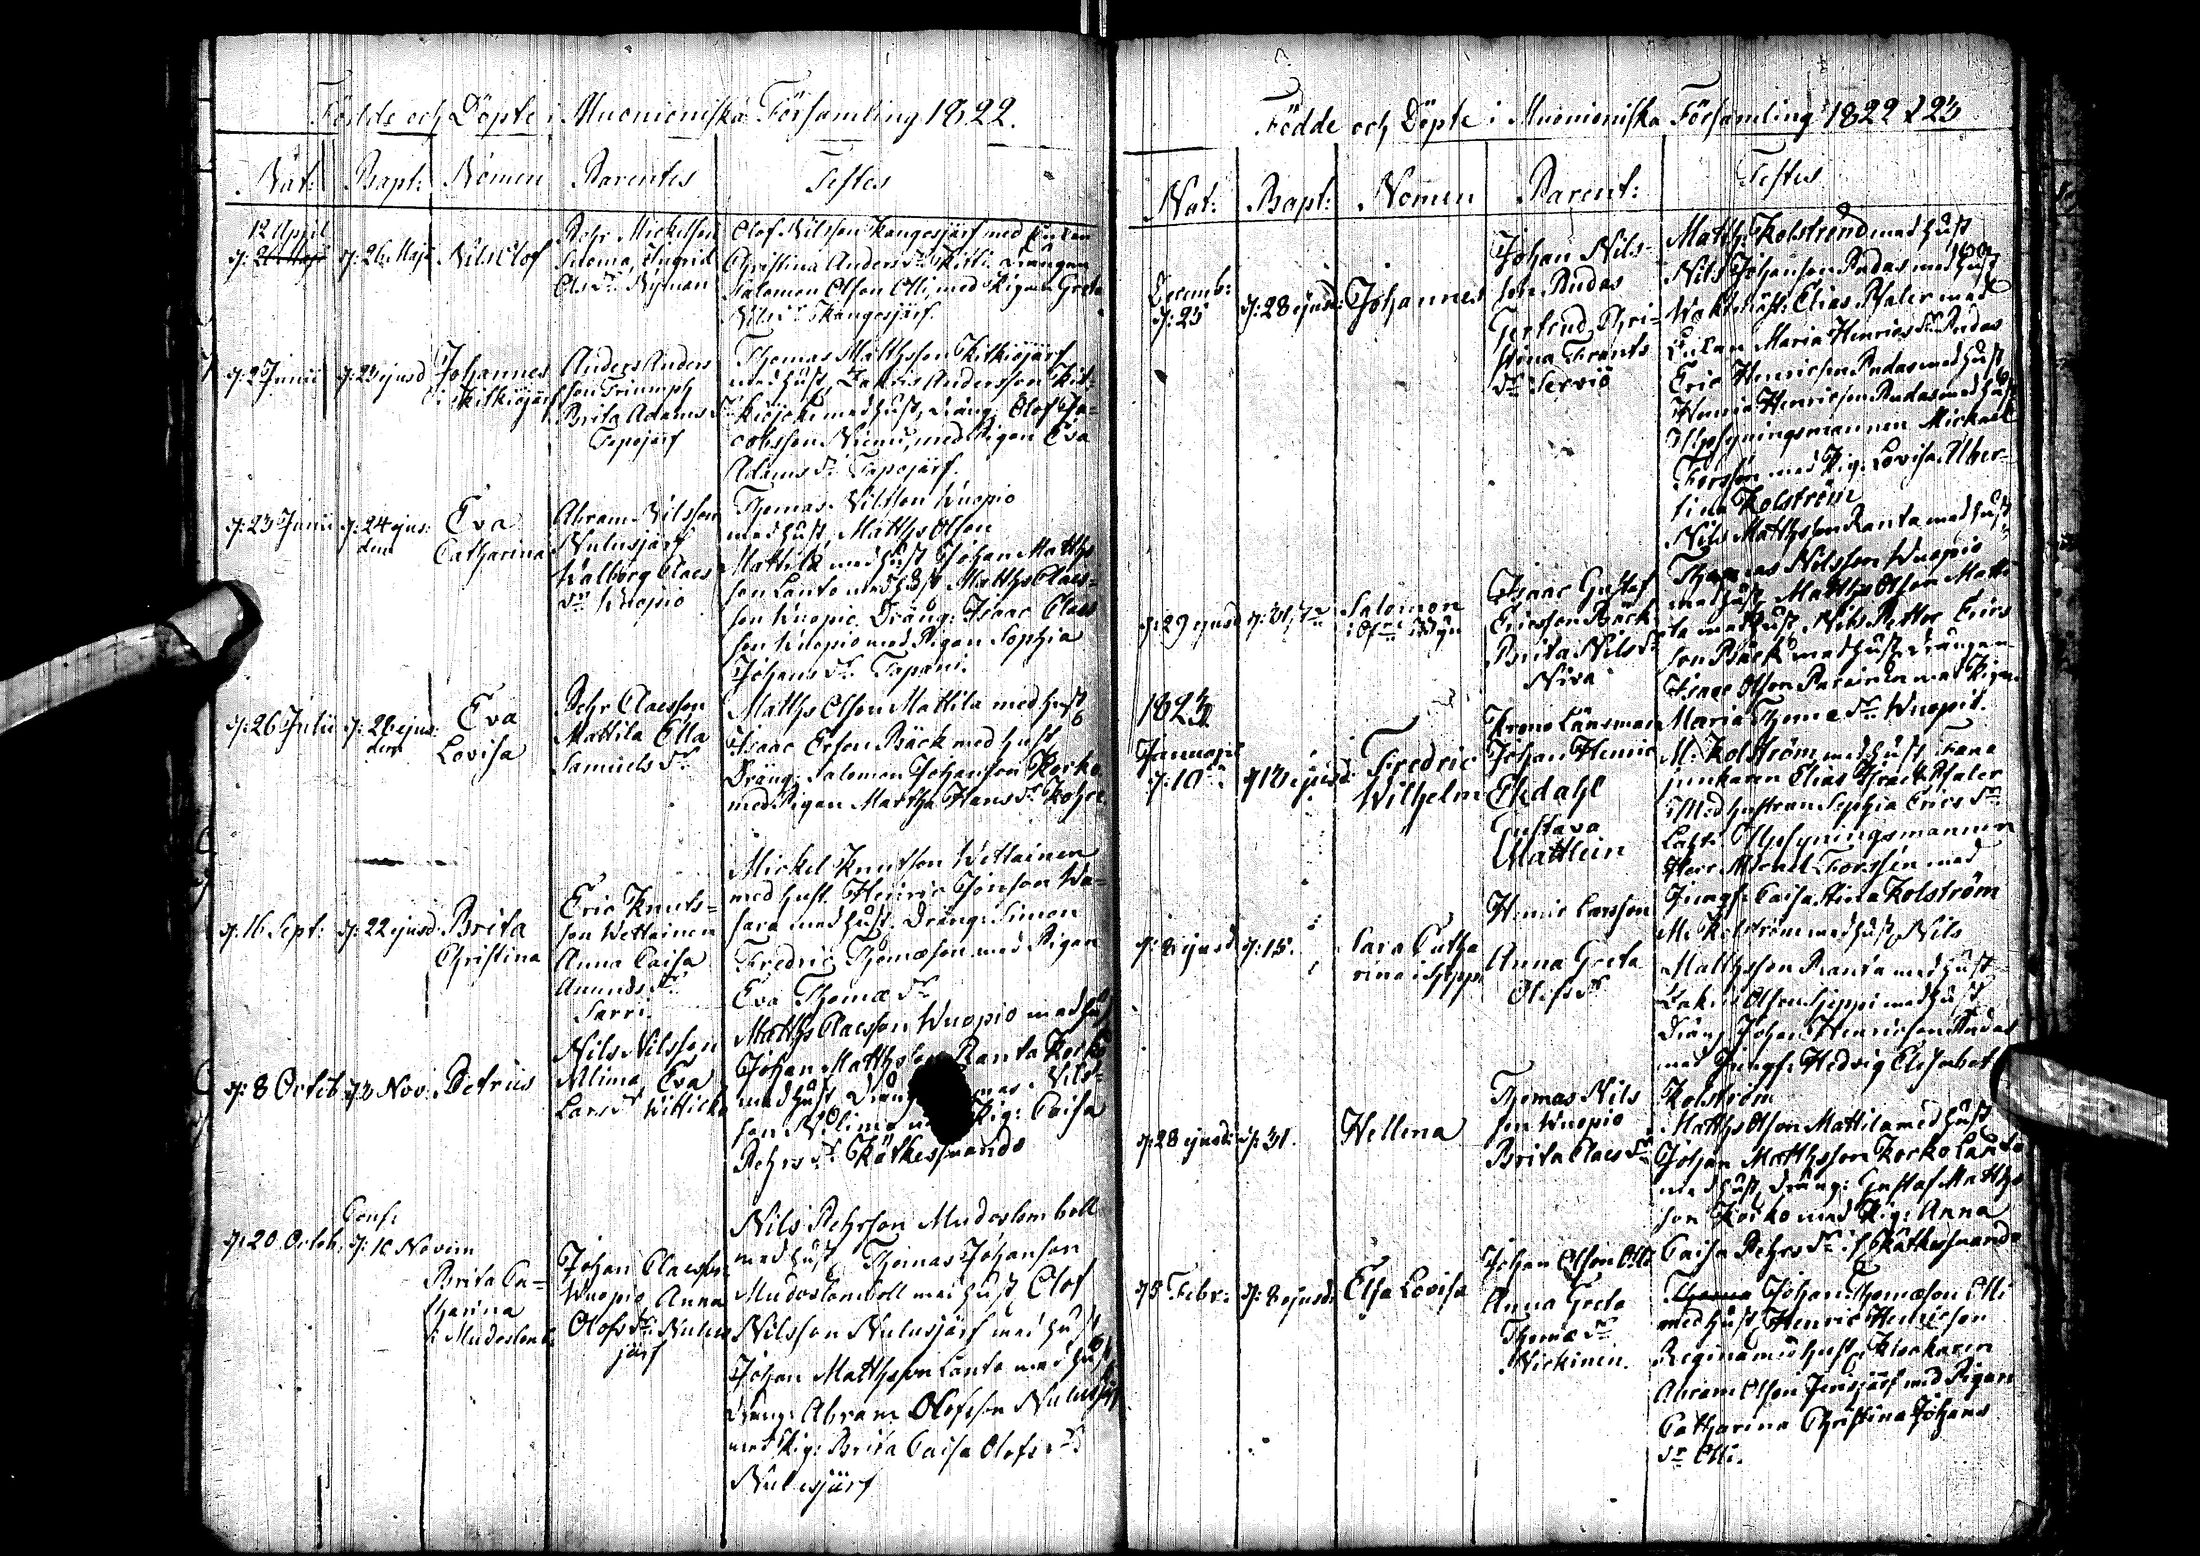 Födde och Döpte i Muonioniska Församling 1822.
Nat: Bapt: Nomen Parentes Testes
12 April
d: 26 Maji d: 26 Maji Nils Olof
Pehr Mickelsson
Saloma, Ingrid
Ols dr Nyman
Olof Nilsson Kangosjärf med
Christina Anders dr Kitti. Drängen
Salomon Olsson Olli, med Pigan Greta
Nils dr Kangosjärf.
d: 2 Junii d: 23 ejusd Johannes
i Kitkiöjärf
Anders Anders
son Triumph
Brita Adams dr
Tapojärf
Thomas Matthsson Kitkiöjärf
med hust, Zakris Andersson Kit-
kiöjoki med hust, Dräng: Olof Ja-
cobsson Niemi, med Pigan Eva
Adams dr Tapojärf.
d: 23 Junii d: 24 ejus:
dem
Eva
Catharina
Abram Nilsson
Nulusjärf
Walborg Claes
dr Wuopio
Thomas Nilsson Wuopio
med hust, Matths Olson
Mattila med hust Johan Matths
son Lanto med hust Matths Claes-
son Wuopio. Dräng: Isaac Claes
son Wuopio med Pigan Sophia
Johans dr Tapani.
d: 26 Julii d: 26 ejus:
dem
Eva
Lovisa
Pehr Claesson
Mattila Ella
Samuels dr
Matths Olson Mattila med hust
Isaac Erson Bäck med hust
Dräng: Salomon Johansson Korko
med Pigan Martha Hans dr
d: 16 Sept: d: 22 ejusd Brita
Christina
Eric Knuts-
son Wettainen
Anna Caisa
Amunds dr
Sarri.
Mickel Knutson Wettainen
med hust. Henric Jönson Wa-
sara med hust. Dräng: Simon
Fredric Thomæson med Pigan
Eva Thomæ dr
d: 8 Octob d: 3 Nov: Petrus
Nils Nilsson
Nlima, Eva
Lars dr Wittikko
Matths Claesson Wuopio med hust
Johan Matthsson Ranta Korko
med hust, Dräng Nils-
son Pig: Caisa
Pehrs dr Kätkesuando
Conf:
d: 20 Octob: d: 10 Novem
Brita Ca-
tharina
i: Mudoslomb.
Johan Claesson
Wuopio, Anna
Olofs dr Nulus
järf
Nils Pehrson Mudoslomboll
med hust Thomas Johanson
Mudoslomboll med hust Olof
Nilsson Nulusjärf med hust
Johan Matthsson Lanto med hust
Dräng: Abram Olofsson Nulusjärf
med Pig: Brita Caisa Olofs dr
Nulusjärf
Födde och Döpte i Muonioniska Församling 1822 & 23
Nat: Bapt: Nomen Parent: Testes
Decemb:
d: 25 d: 28 ejusd: Johannes
Johan Nils-
son Rudas
Gertrud Chri-
stina Frants
dr Serviö
Matth: Kolström med hust
Nils Johanson Rudas med hust
Waktmäst: Elias Thaler med
Enkan Maria Henrics dr Rudas
Eric Henricson Rudas med hust
Henric Henricson Rudas med hust
Upsyningsmannen Mickael
Forssén med Pig: Lovisa Alber-
tina Kolström
d: 29 ejusd d: 31 Salomon
Isaac Gustaf
Ericson Bäck
Brita Nils dr
Niva
Nils Matthsson Ranta med hust
Thomas Nilsson Wuopio
med hust Matths Olson Matti
la med hust, Nils Petter Erics
son Bäck med hust, Drängen
Isaac Olson med Pigan
Maria Thomæ dr Wuopio.
1823
Januarii
d: 10 d: 13 ejusd: Fredric
Wilhelm
Krono Länsman
Johan Henric
Ekdahl
Gustava
Mattlein
M: Kolström med hust, Fana
junkaren Elias Thaler
Med hustrun Sophia Erics dr
Upsyningsmannen
Herr Michael Forssén med
Jungf: Caisa Stina Kolström
d: 8 ejusd d: 15. Cara Catha
rina i
Henric Larsson
Anna Greta
Olofs dr
M: Kolström med hust, Nils
Matthsson Ranta med hust
Zakris Olson Seppi med hust
Dräng Johan Henricson Rudas
med Jungf: Hedvig Elisabet
Kolström
d: 28 ejusd: d: 31. Hellena
Thomas Nils
son Wuopio
Brita Claes dr
Matths Olson Mattila med hust
Johan Matthsson Korko Lanto
med hust, Dräng: Gustaf Matths
son Korko med Pig: Anna
Caisa Pehrs dr i Kätkesuando
d: 5 Febr: d: 8 ejusd: Elsa Lovisa
Johan Olson Olli
Anna Greta
Thomæ dr
Nickinen.
Thoma Johan Thomæson Olli
med hust, Henric Henricson
Regina med hust, Klockaren
Abram Olson Jerisjärf med Pigan
Catharina Christina Johans
dr Olli.